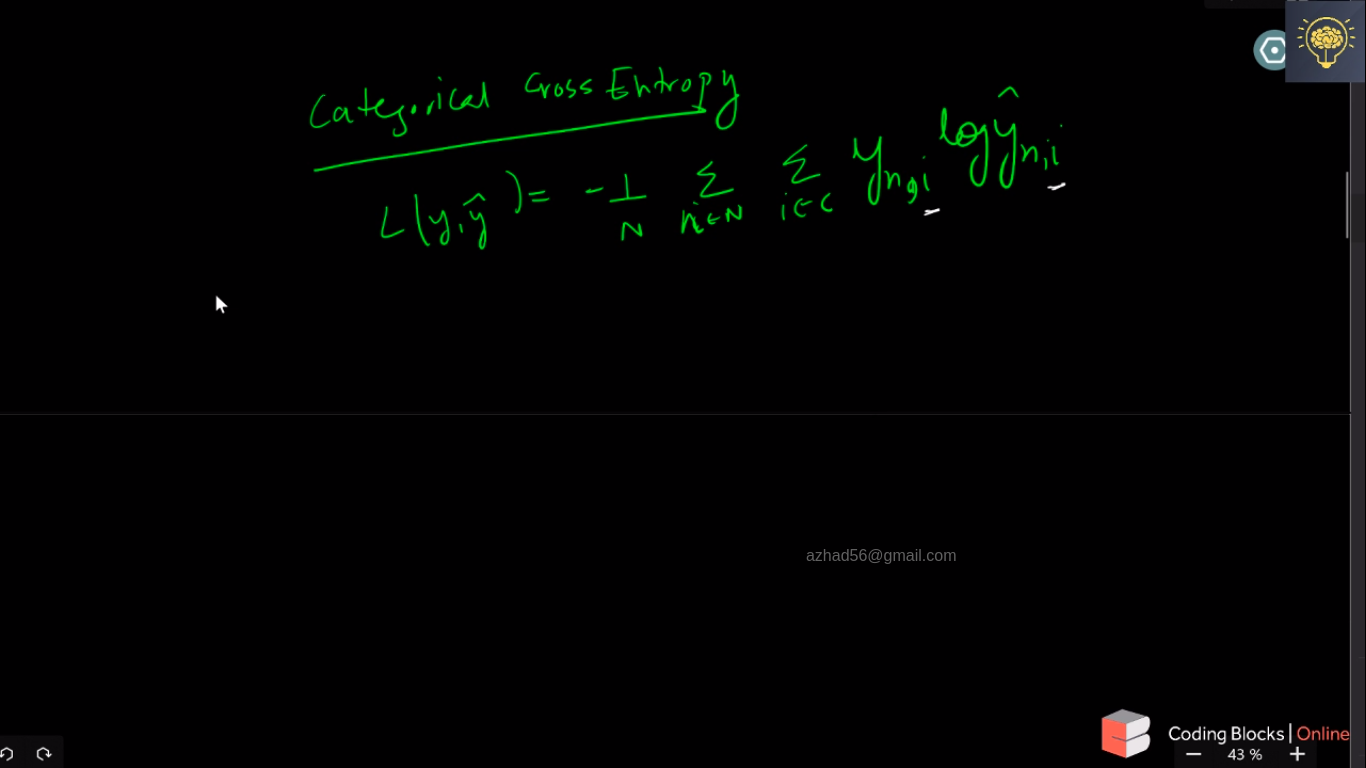 Categorical Cross Entropy
L(y, ŷ) = - 1/N Σ n∈N Σ i∈C y n,i log ŷ n,i
azhad56@gmail.com
Coding Blocks | Online
43 %